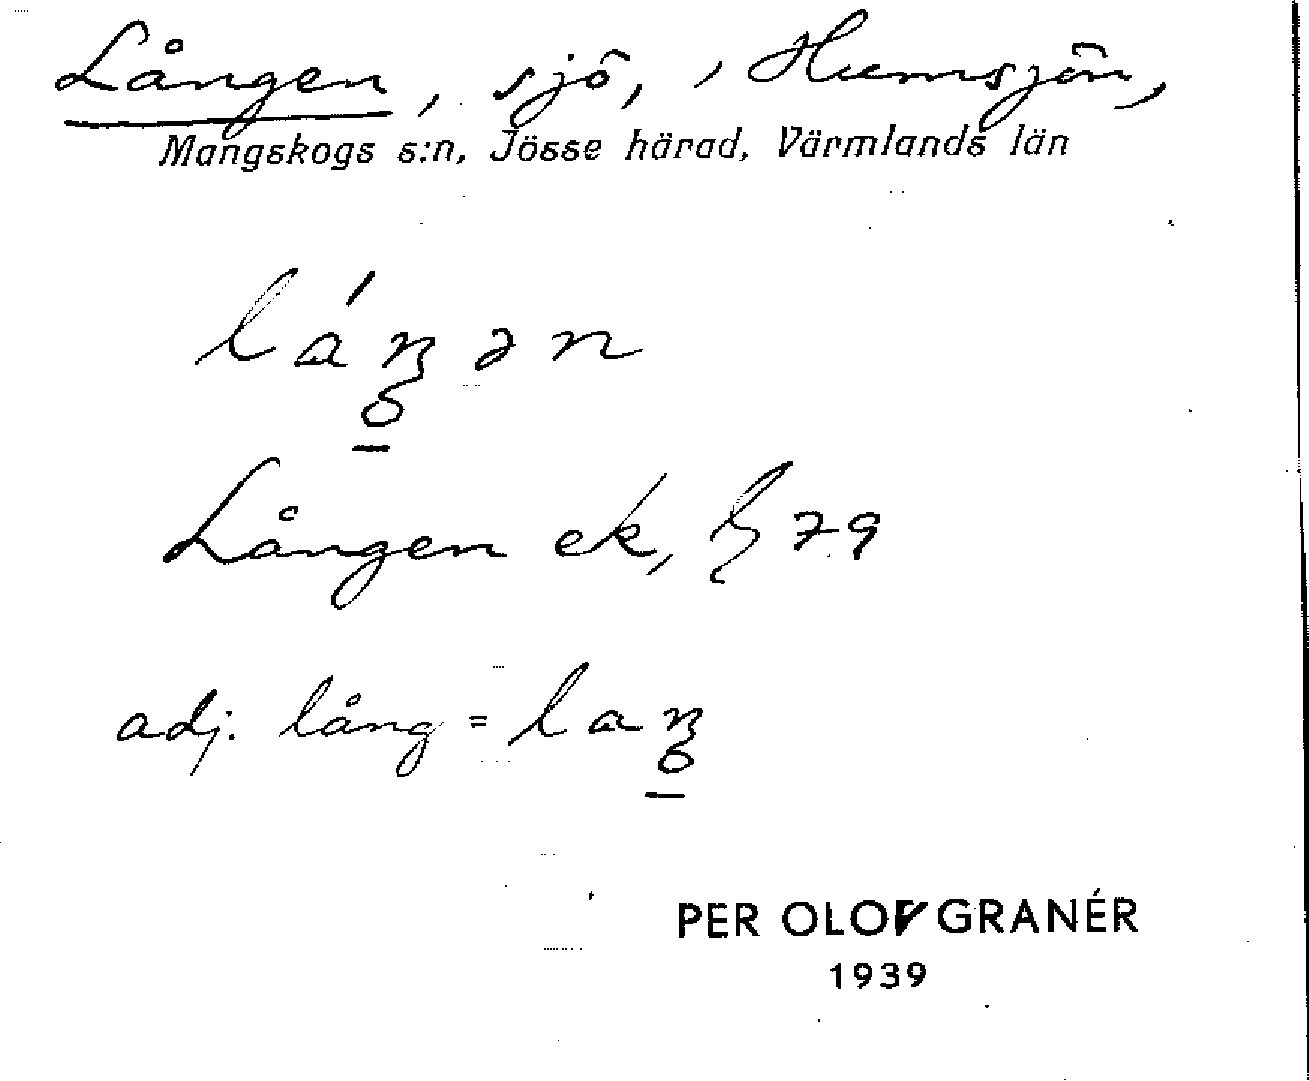 Lången, sjö, , Humsjön,
Mangskogs s:n, Jösse härad, Värmlands län
láŋən
Lången ek, § 79
adj. lång = laŋ
PER OLOF GRANÉR
1939